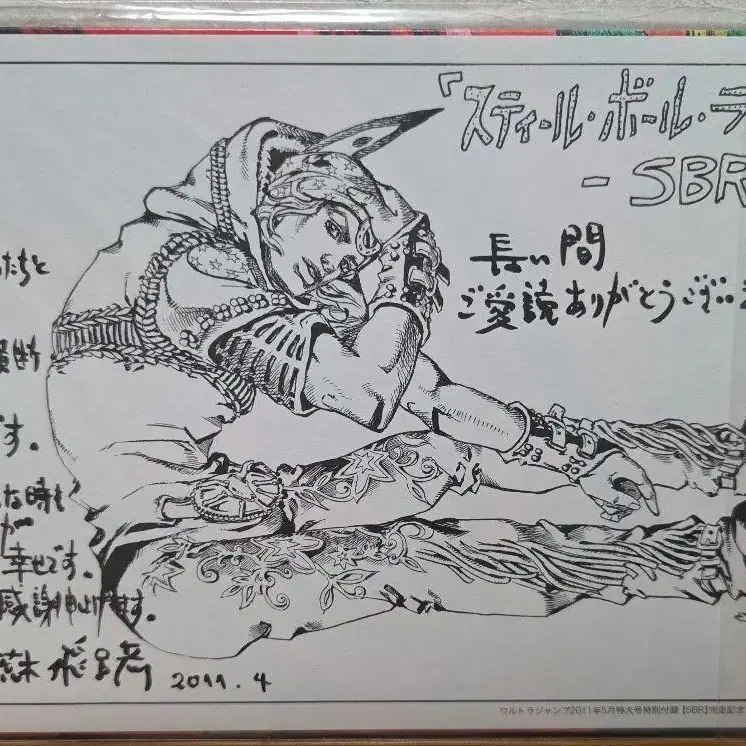 『スティール・ボール・ラ
- SBR
長い間
ご愛読ありがとうござい
たちと
横断
す。
な時も
が
幸せです。
感謝申し上げます。
荒木飛呂彦
2011.4
ウルトラジャンプ2011年5月特大号特別付録【SBR】完走記念